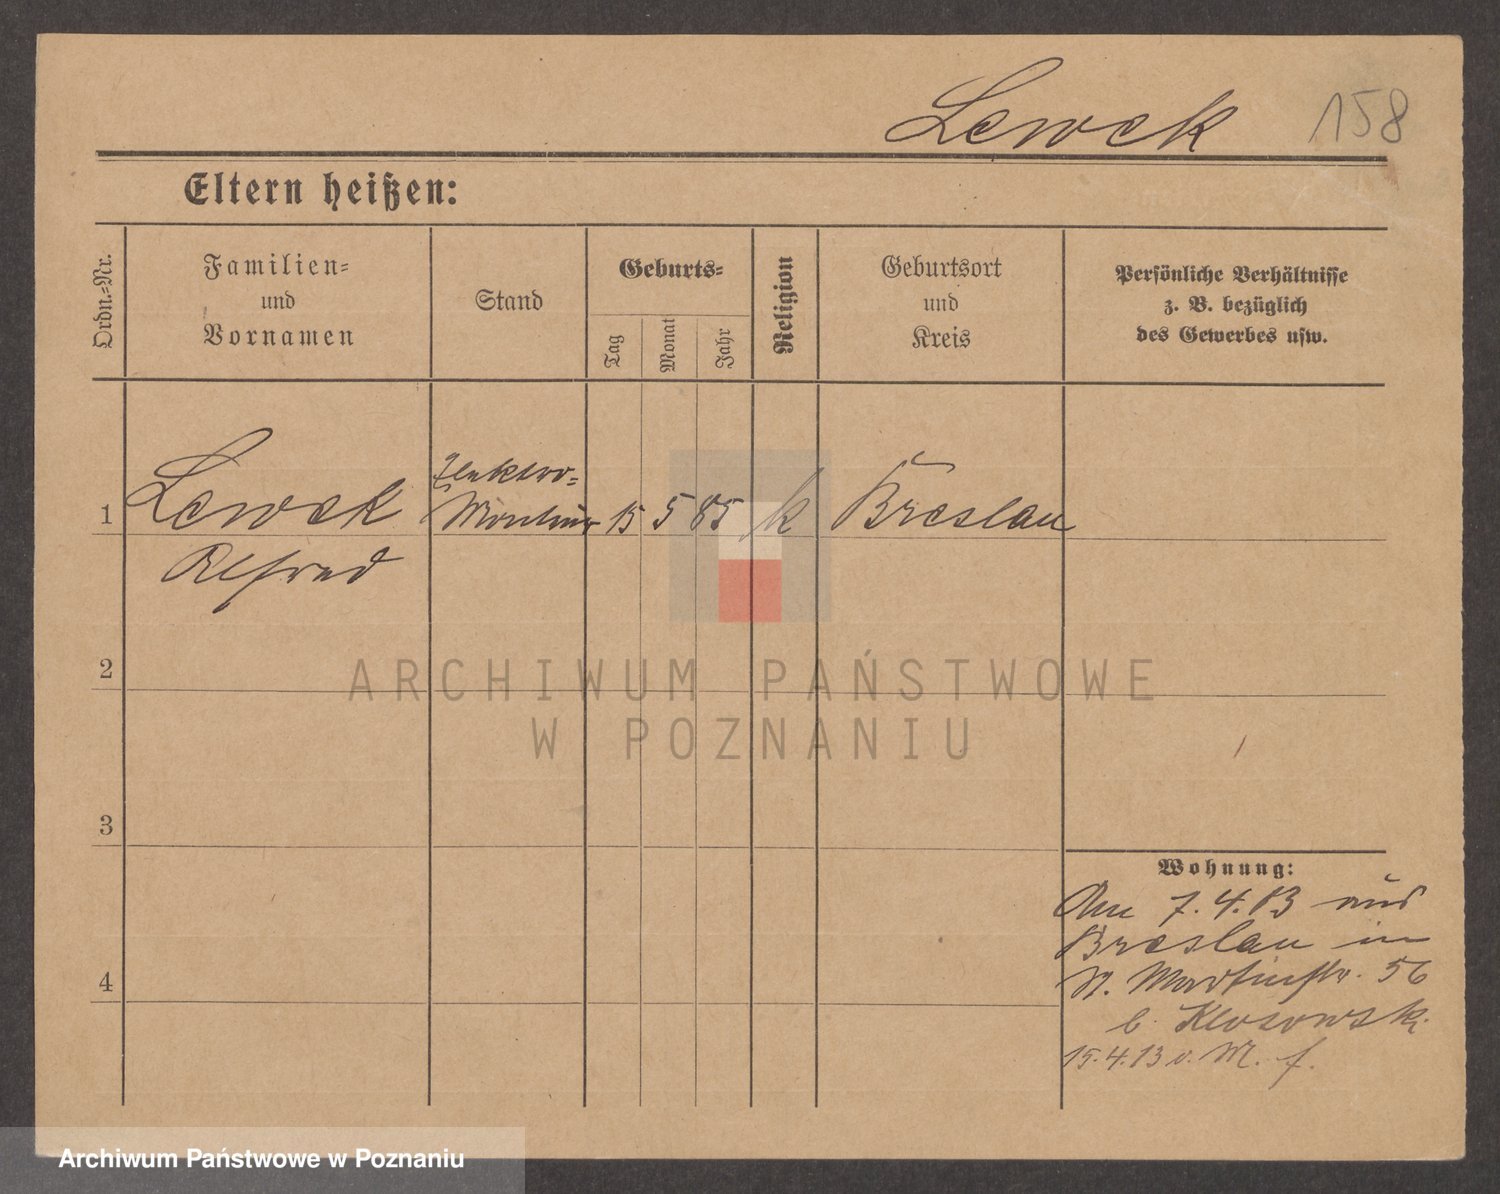 Lewek 158
Eltern heißen:
Ordn.-Nr.
Familien-
und
Vornamen
Stand
Geburts-
Tag
Monat
Jahr
Religion
Geburtsort
und
Kreis
Persönliche Verhältnisse
z. B. bezüglich
des Gewerbes usw.
1
Lewek
Alfred
Elektro-
Monteur
15 5 85 k Breslau
2
ARCHIWUM PAŃSTWOWE
W POZNANIU
3
4
Wohnung:
Am 7.4.13 aus
Breslau in
St. Martinstr. 56
b. Klosowski
15.4.13 v. M. f.
Archiwum Państwowe w Poznaniu